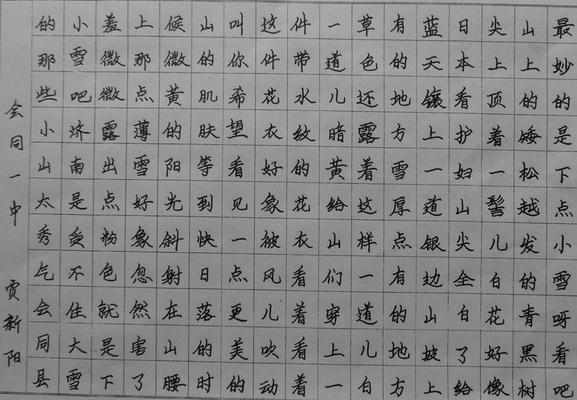 最妙的是下点小雪呀看吧
山上的矮松越发的青黑树
尖上顶着一髻儿白花好像
日本看护妇山尖全白了给
蓝天镶上一道银边山坡上
有的地方雪厚点有的地方
草色还露着这样一道儿白
一道儿暗黄给山们穿上一
件带水纹的花衣看着看着
这件花衣好象被风儿吹动
叫你希望看见一点更美的
山的肌肤等到快日落的时
候微黄的阳光斜射在山腰
上那点薄雪好象忽然害了
羞微微露出点粉色就是下
小雪吧济南是受不住大雪
的那些小山太秀气会同县
会同一中 贾新阳